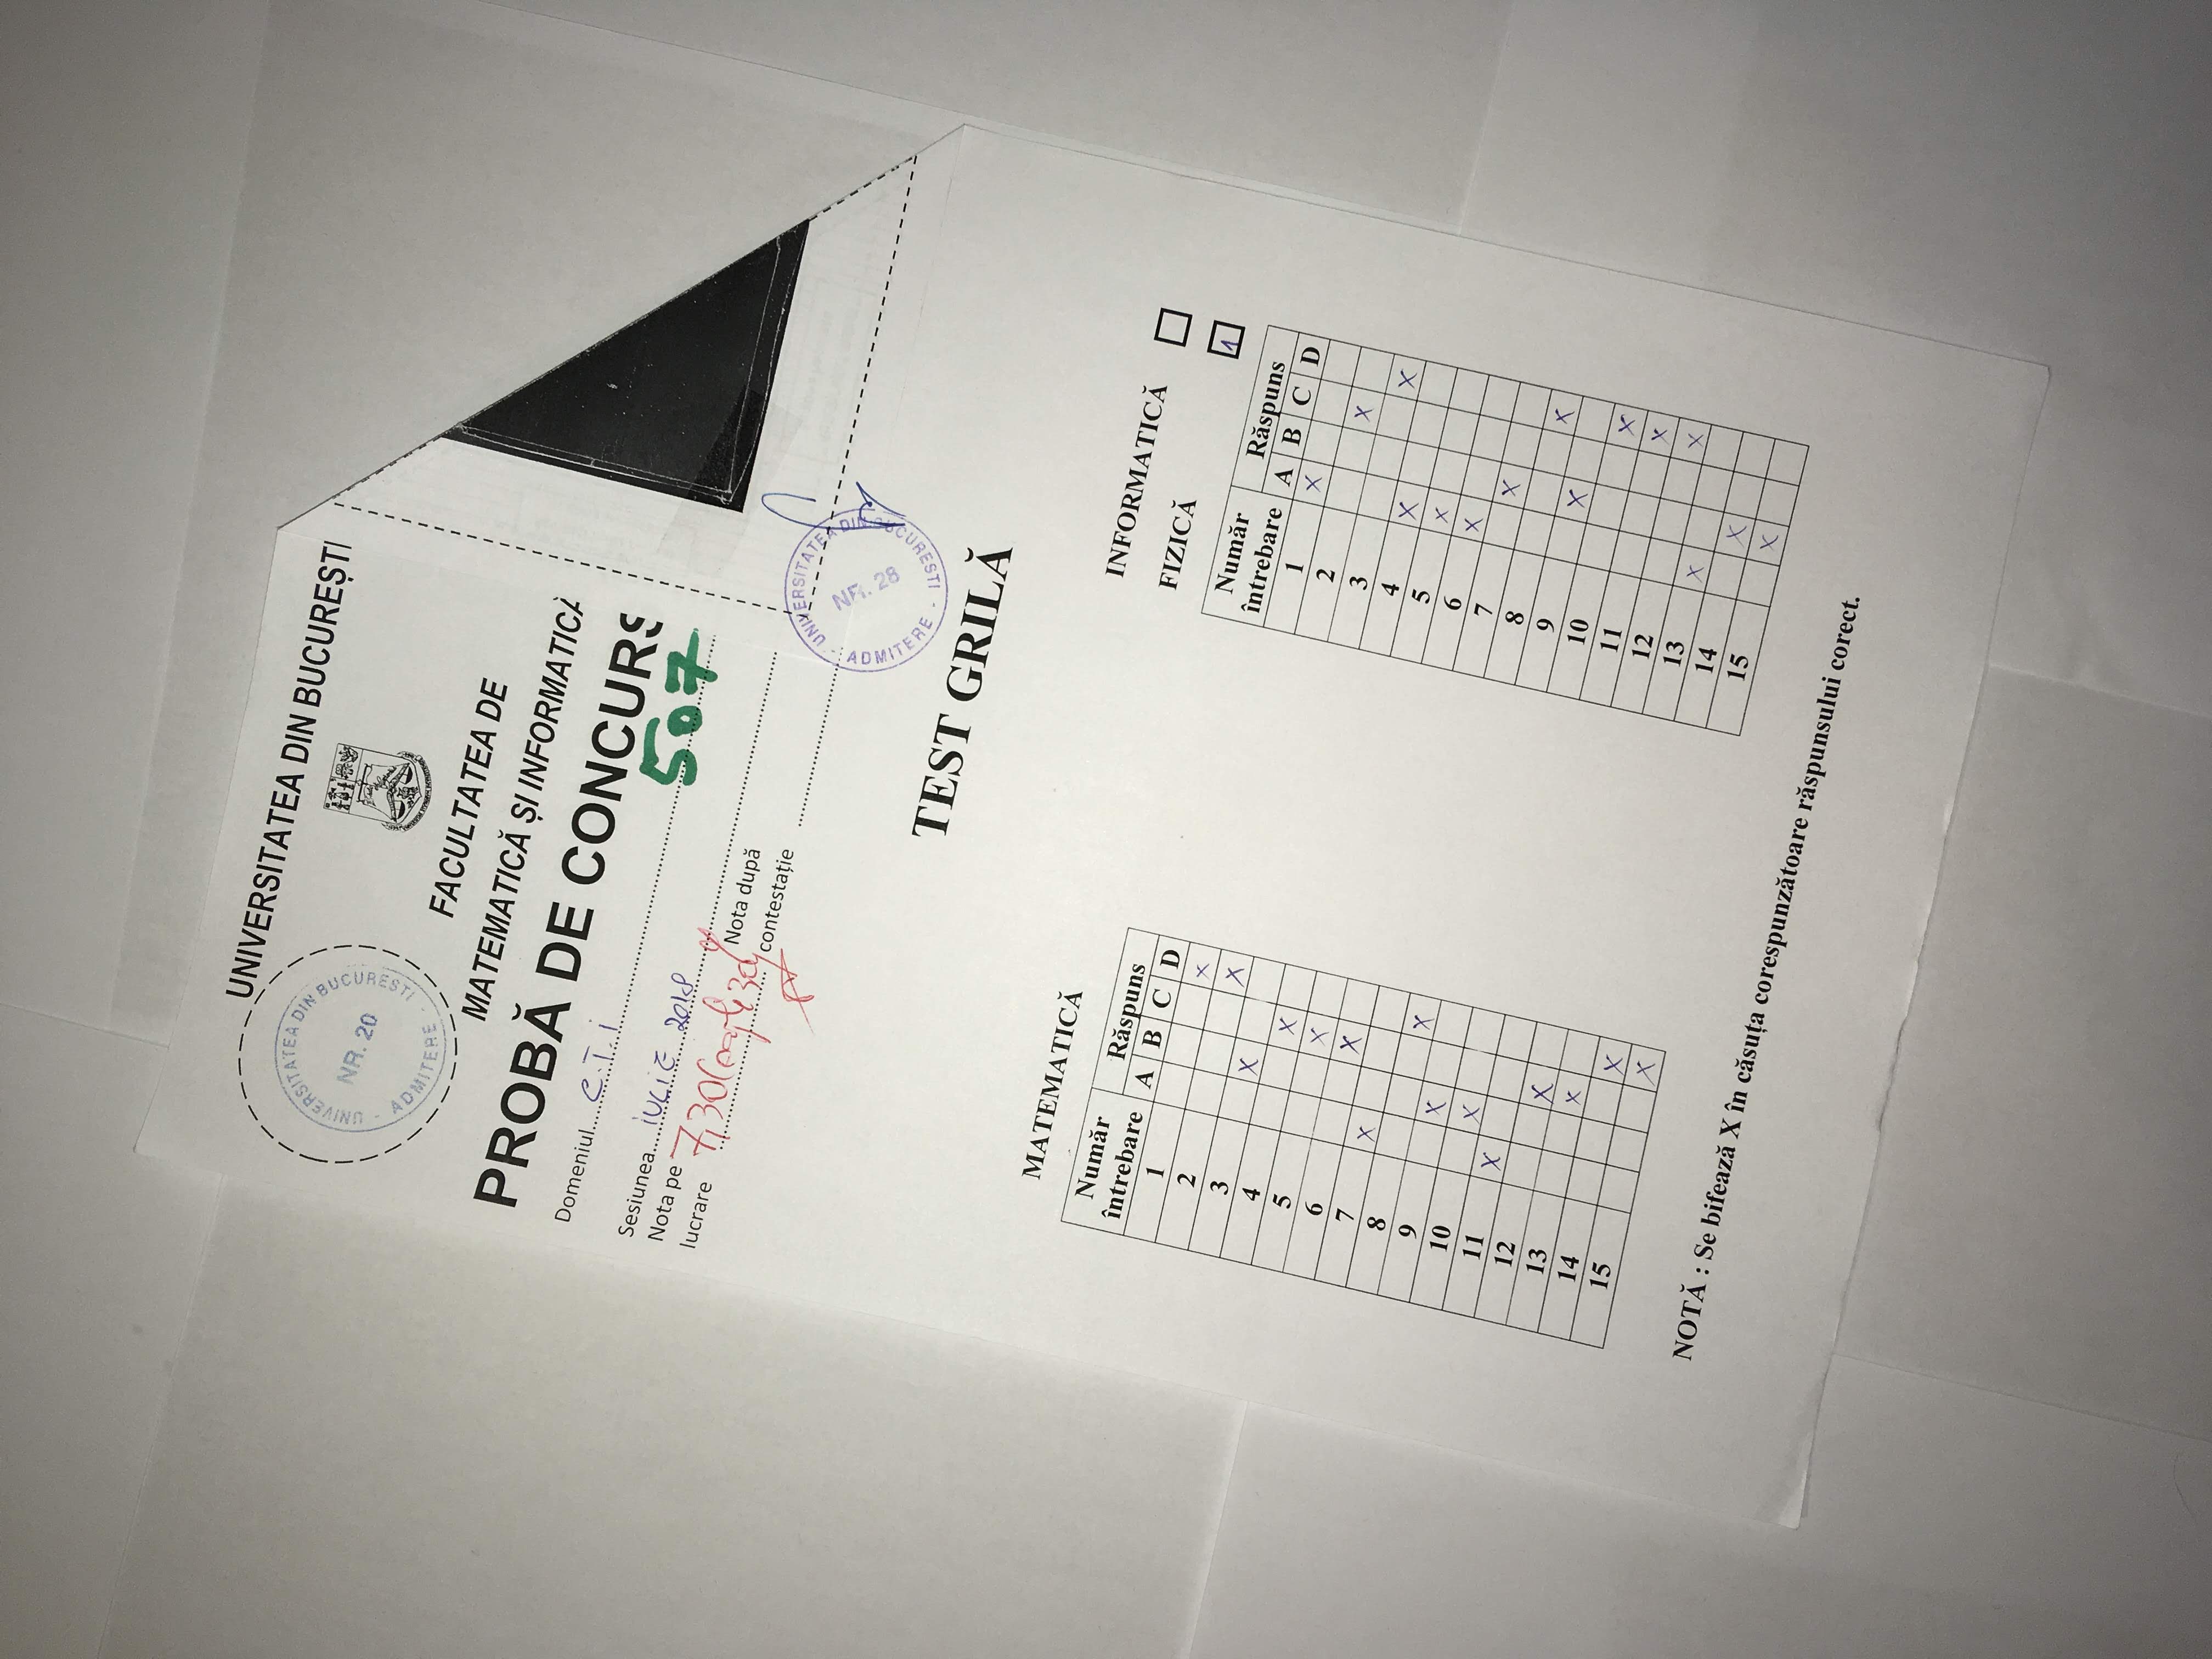 UNIVERSITATEA DIN BUCUREȘTI
- UNIVERSITATEA DIN BUCURESTI - ADMITERE
NR. 20
FACULTATEA DE
MATEMATICĂ ȘI INFORMATICĂ
PROBĂ DE CONCURS
Domeniul.... C.T.i
507
Sesiunea.... iULiE 2018
Nota pe lucrare 7,30
Nota după contestație
- UNIVERSITATEA DIN BUCURESTI - ADMITERE
NR. 28
TEST GRILĂ
MATEMATICĂ
Număr întrebare Răspuns
A B C D
1 X
2 X
3 X
4 X
5 X
6 X
7 X
8 X
9 X
10 X
11 X
12 X
13 X
14 X
15 X
INFORMATICĂ
FIZICĂ 1
Număr întrebare Răspuns
A B C D
1 X
2 X
3 X
4 X
5 X
6 X
7 X
8 X
9 X
10 X
11 X
12 X
13 X
14 X
15 X
NOTĂ : Se bifează X în căsuța corespunzătoare răspunsului corect.